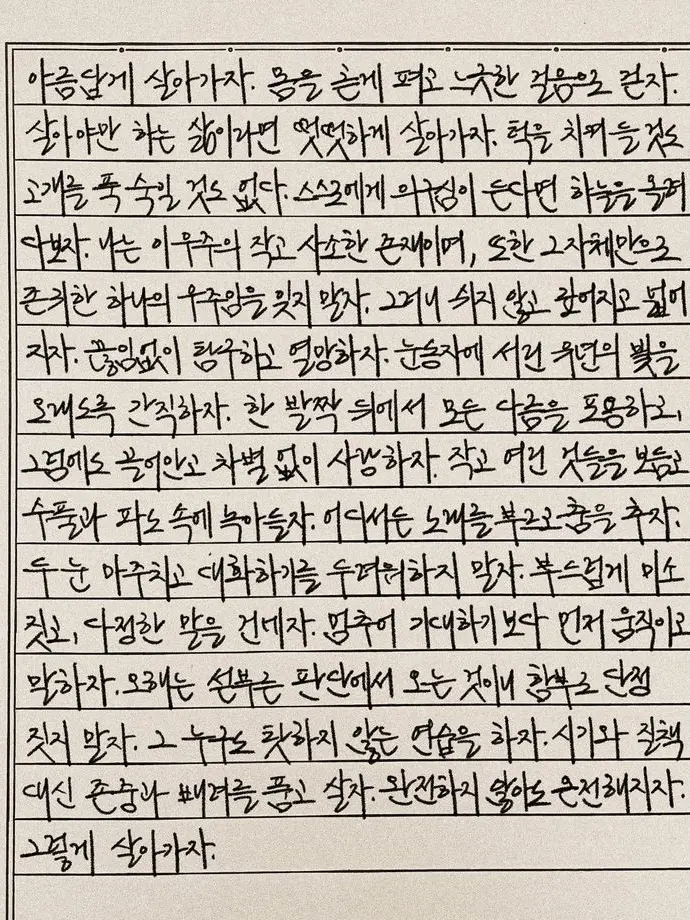 아름답게 살아가자. 몸을 곧게 펴고 느긋한 걸음으로 걷자.
살아야만 하는 삶이라면 멋멋하게 살아가자. 턱을 치켜들 것도
고개를 푹 숙일 것도 없다. 스스로에게 의구심이 든다면 하늘을 올려
다보자. 나는 이 우주의 작고 사소한 존재이며, 또한 그 자체만으로
존귀한 하나의 우주임을 잊지 말자. 그러니 쉬지 않고 깊어지고 넓어
지자. 끊임없이 탐구하고 열망하자. 눈동자에 서린 유년의 빛을
오래도록 간직하자. 한 발짝 뒤에서 모든 다름을 포용하고,
그럼에도 끌어안고 차별 없이 사랑하자. 작고 여린 것들을 보듬고
수풀과 파도 속에 녹아들자. 어디서든 노래를 부르고 춤을 추자.
두 눈 마주치고 대화하기를 두려워하지 말자. 부드럽게 미소
짓고, 다정한 말을 건네자. 멈추어 기대하기보다 먼저 움직이고
말하자. 오해는 선부른 판단에서 오는 것이니 함부로 단정
짓지 말자. 그 누구도 탓하지 않는 연습을 하자. 시기와 질책
대신 존중과 배려를 품고 살자. 완전하지 않아도 온전해지자.
그렇게 살아가자.